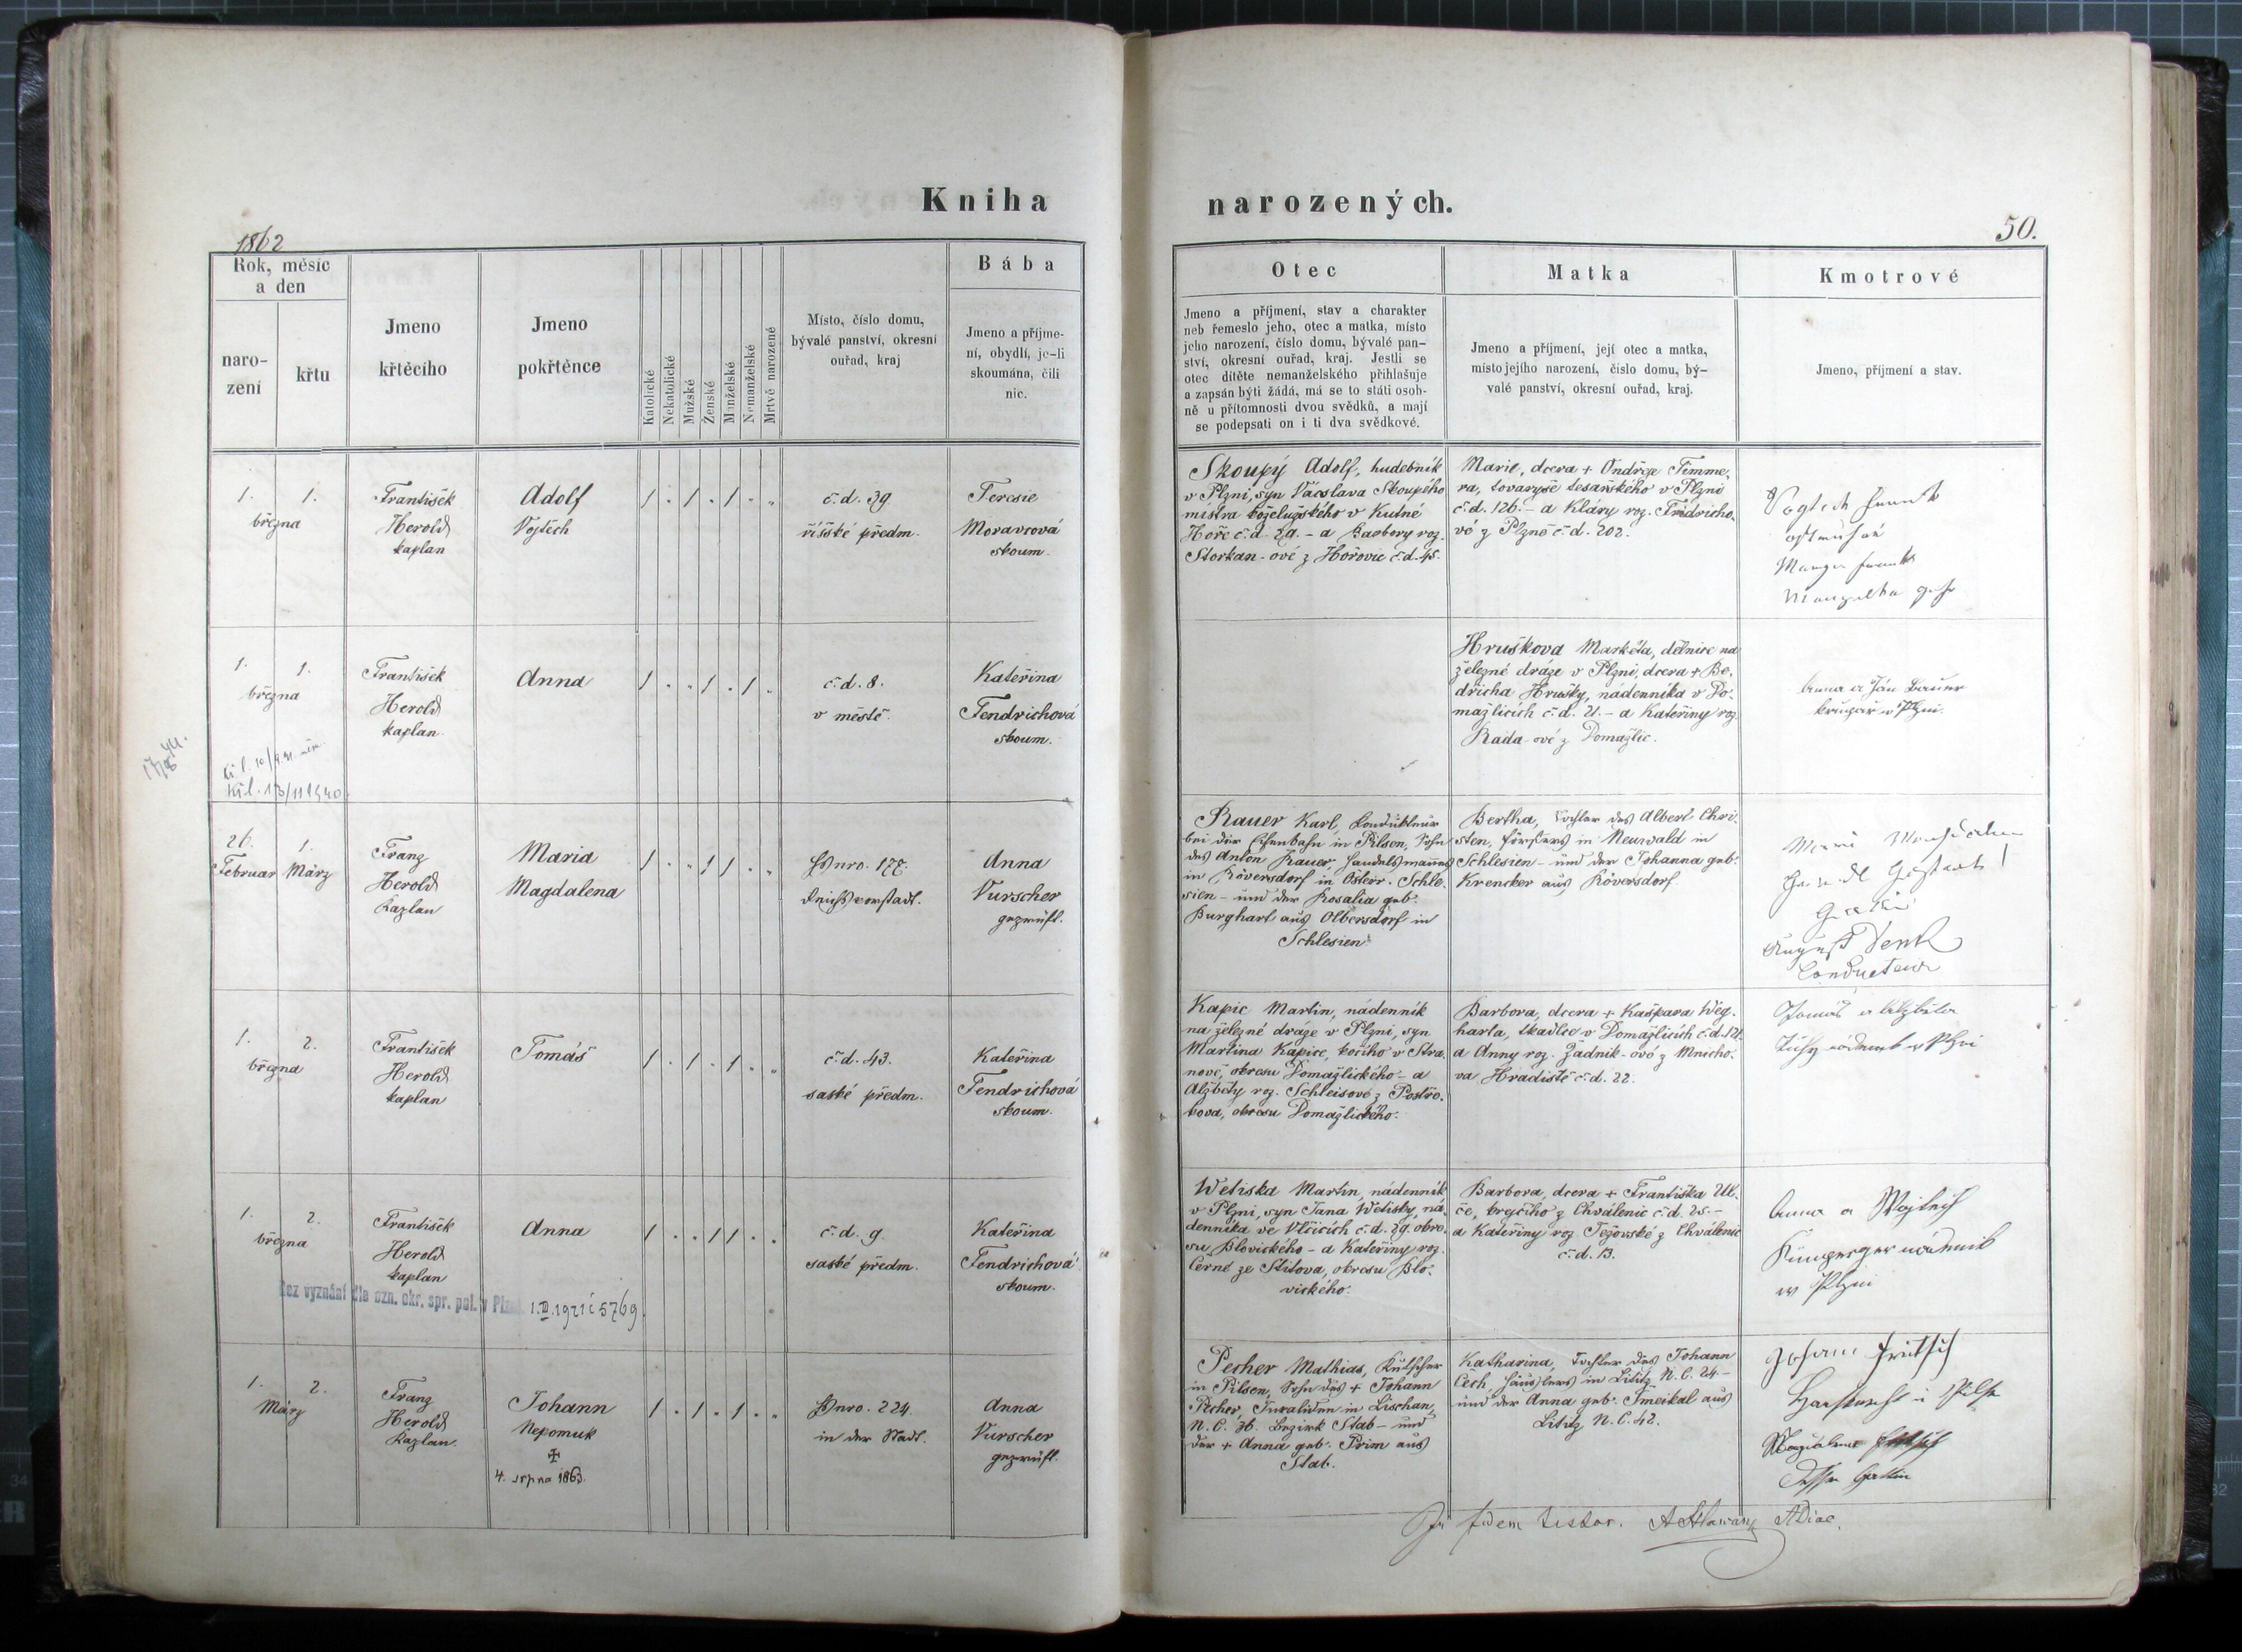 Kniha
narozených.
1862
50.
Rok, měsíc
a den
naro-
zení
křtu
Jmeno
křtěcího
Jmeno
pokřtěnce
Katolické
Nekatolické
Mužské
Ženské
Manželské
Nemanželské
Mrtvě narozené
Místo, číslo domu,
bývalé panství, okresní
ouřad, kraj
Bába
Jmeno a příjme-
ní, obydlí, je-li
skoumána, čili
nic.
Otec
Jmeno a příjmení, stav a charakter
neb řemeslo jeho, otec a matka, místo
jeho narození, číslo domu, bývalé pan-
ství, okresní ouřad, kraj. Jestli se
otec dítěte nemanželského přihlašuje
a zapsán býti žádá, má se to státi osob-
ně u přítomnosti dvou svědků, a mají
se podepsati on i ti dva svědkové.
Matka
Jmeno a příjmení, její otec a matka,
místo jejího narození, číslo domu, bý-
valé panství, okresní ouřad, kraj.
Kmotrové
Jmeno, příjmení a stav.
1. 1.
března
František
Herold
kaplan
Adolf
Vojtěch
č. d. 39
říšské předm.
Teresie
Moravcová
skoum.
Skoupý Adolf, hudebník
v Plzni, syn Václava Skoupého
mistra koželužského v Kutné
Hoře č. d. 29. - a Barbory roz.
Storkan-ové z Hořovic č. d. 45.
Marie, dcera + Ondřeje Timme,
ra, tovaryše tesařského v Plzni
č. d. 126. - a Kláry roz. Fridricho,
vé z Plzně č. d. 202.
1. 1.
března
František
Herold
kaplan
Anna
č. d. 8.
v městě.
Kateřina
Fendrichová
skoum.
Hruškova Markéta, dělnice na
železné dráze v Plzni, dcera + Be,
dřicha Hrušky, nádenníka v Do,
mažlicích č. d. 21. - a Kateřiny roz.
Rada-ové z Domažlic.
Anna a Ján Bauer
v Plzni.
26. 1.
Februar März
Franz
Herold
Kaplan
Maria
Magdalena
Hsnro. 178.
Reichsvorstadt.
Anna
Vurscher
geprüft.
Rauer Karl, Kondukteur
bei der Eisenbahn in Pilsen, Sohn
des Anton Rauer, Handelsmannes
in Röversdorf in Österr. Schle,
sien - und der Rosalia geb.
Burghart aus Olbersdorf in
Schlesien
Bertha, Tochter des Albert Chri,
sten, Försters in Neuwald in
Schlesien - und der Johanna geb.
Krencker aus Röversdorf.
August Denk
Conducteur
1. 2.
března
František
Herold
kaplan
Tomáš
č. d. 43.
saské předm.
Kateřina
Fendrichová
skoum.
Kapic Martin, nádenník
na železné dráze v Plzni, syn
Martina Kapice, kočího v Stra,
nové, okresu Domažlického - a
Alžběty roz. Schleisové z Postřo,
kova, okresu Domažlického.
Barbora, dcera + Kašpara Weg,
harta, tkadlce v Domažlicích č. d. 121.
a Anny roz. Žádnik-ové z Mnicho,
va Hradiště č. d. 22.
Tomáš a Alžběta
1. 2.
března
František
Herold
kaplan
Anna
č. d. 9.
saské předm.
Kateřina
Fendrichová
skoum.
Bez vyznání dle ozn. okr. spr. pol. v Plzni 1.III.1921 č 5769.
Wetiska Martin, nádenník
v Plzni, syn Jana Wetisky, ná,
denníka ve Vlčicích č. d. 29. okre,
su Blovického - a Kateřiny roz.
Černé ze Štítova, okresu Blo,
vického.
Barbora, dcera + Františka Ul,
če, krejčího z Chválenic č. d. 25. -
a Kateřiny roz. Težovské z Chválenic
č. d. 13.
Anna a Wojtěch
nádeník
w Plzni
1. 2.
März
Franz
Herold
Kaplan.
Johann
Nepomuk
4. srpna 1863.
Hsnro. 224.
in der Stadt.
Anna
Vurscher
geprüft.
Pecher Mathias, Kutscher
in Pilsen, Sohn des + Johann
Pecher, Invaliden in Lischan,
N. C. 36. Bezirk Stab - und
der + Anna geb. Prim aus
Stab.
Katharina, Tochter des Johann
Čech, Häuslers in Lititz N. C. 24 -
und der Anna geb. Smeikal aus
Lititz N. C. 42.
Johann Fritsch
Magdalena Fritsch
dessen Gattin
fidem testor.